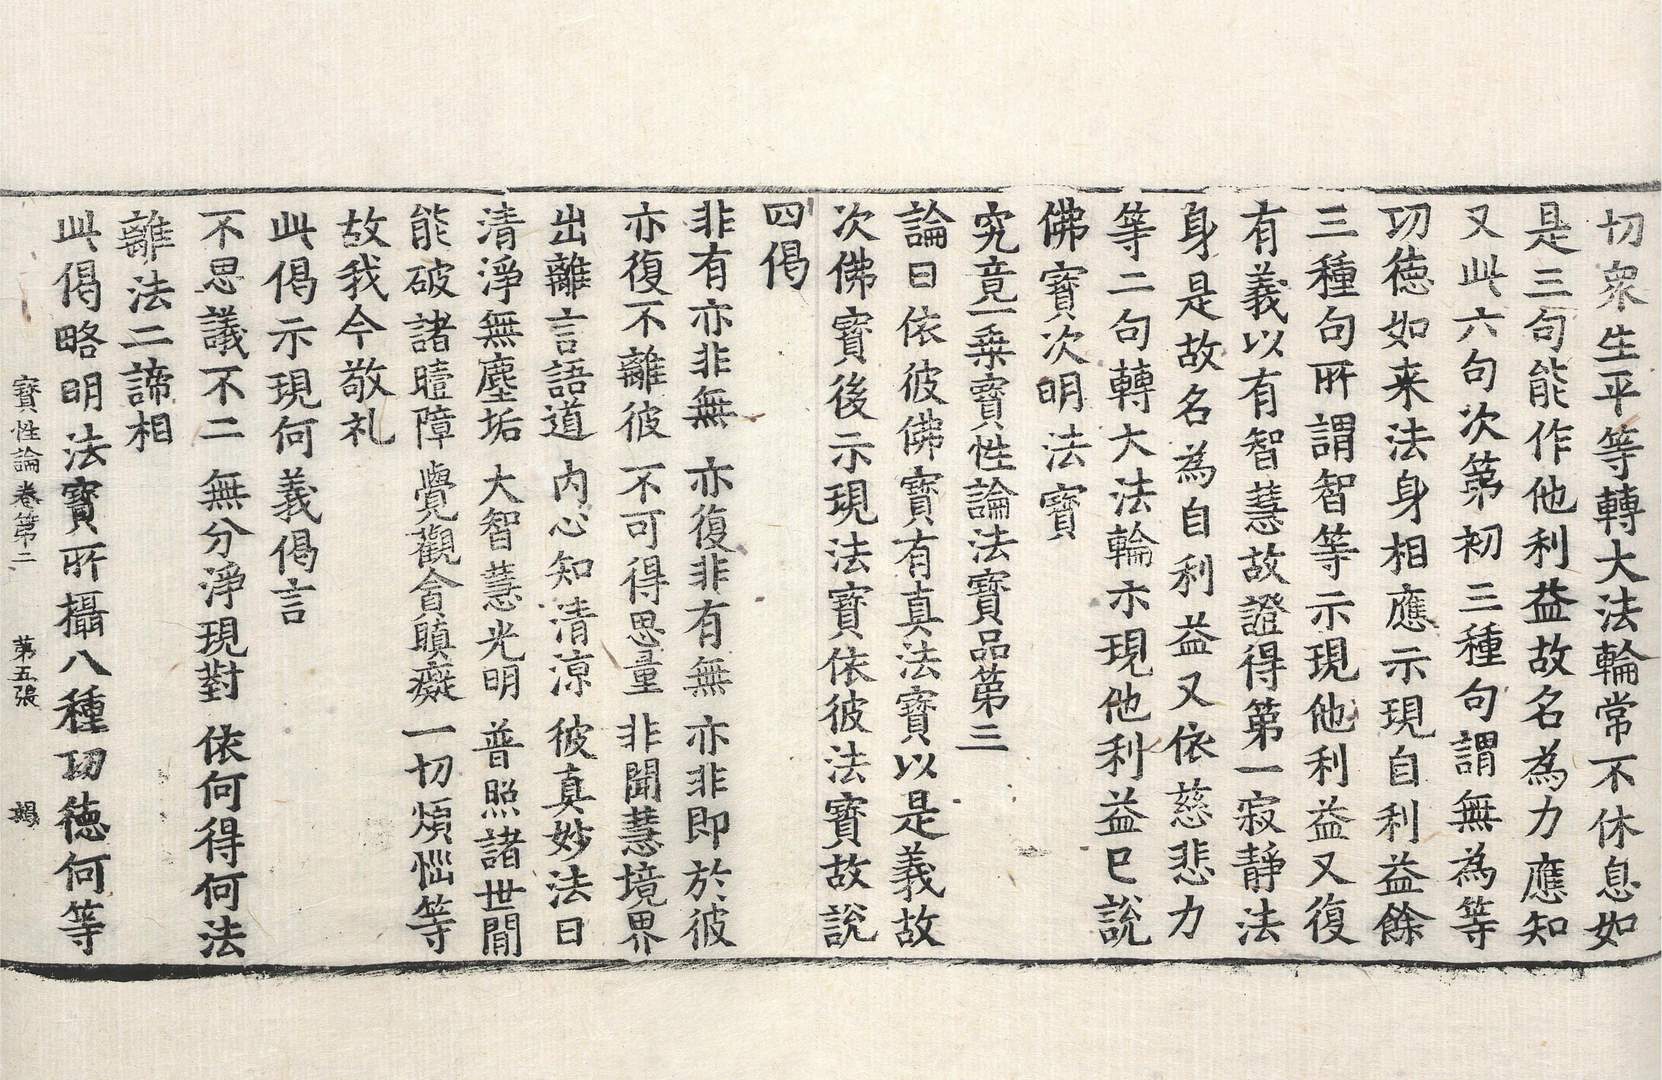 切衆生平等轉大法輪常不休息如
是三句能作他利益故名為力應知
又此六句次第初三種句謂無為等
功德如来法身相應示現自利益餘
三種句所謂智等示現他利益又復
有義以有智慧故證得第一寂靜法
身是故名為自利益又依慈悲力
等二句轉大法輪示現他利益已說
佛寶次明法寶
究竟一乗寶性論法寶品第三
論曰依彼佛寶有真法寶以是義故
次佛寶後示現法寶依彼法寶故說
四偈
非有亦非無 亦復非有無 亦非即於彼
亦復不離彼 不可得思量 非聞慧境界
出離言語道 内心知清涼 彼真妙法日
清淨無塵垢 大智慧光明 普照諸世間
能破諸曀障 覺觀貪瞋癡 一切煩惱等
故我今敬礼
此偈示現何義偈言
不思議不二 無分淨現對 依何得何法
離法二諦相
此偈略明法寶所攝八種功德何等
寶性論卷第二 第五張